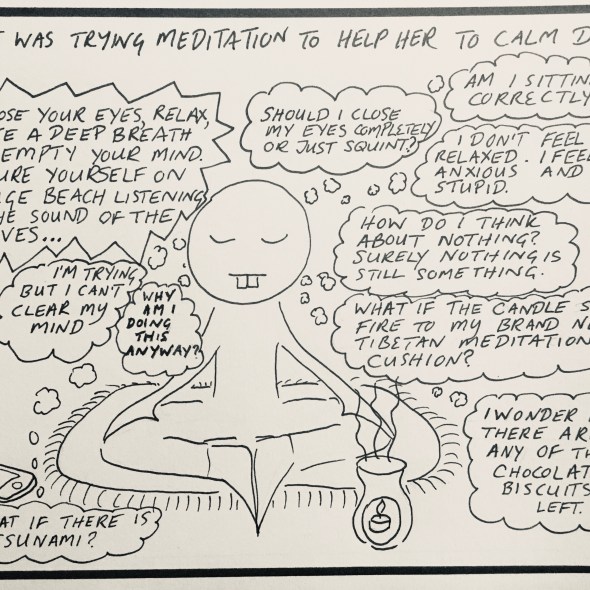 T WAS TRYING MEDITATION TO HELP HER TO CALM D
OSE YOUR EYES, RELAX,
E A DEEP BREATH
EMPTY YOUR MIND.
URE YOURSELF ON
GE BEACH LISTENING
HE SOUND OF THE
VES...
SHOULD I CLOSE
MY EYES COMPLETELY
OR JUST SQUINT?
AM I SITTIN
CORRECTLY
I DON'T FEEL
RELAXED. I FEEL
ANXIOUS AND
STUPID.
HOW DO I THINK
ABOUT NOTHING?
SURELY NOTHING IS
STILL SOMETHING.
I'M TRYING
BUT I CAN'T
CLEAR MY
MIND
WHY
AM I
DOING
THIS
ANYWAY?
WHAT IF THE CANDLE S
FIRE TO MY BRAND N
TIBETAN MEDITATION
CUSHION?
I WONDER I
THERE AR
ANY OF TH
CHOCOLAT
BISCUITS
LEFT.
AT IF THERE IS
TSUNAMI?